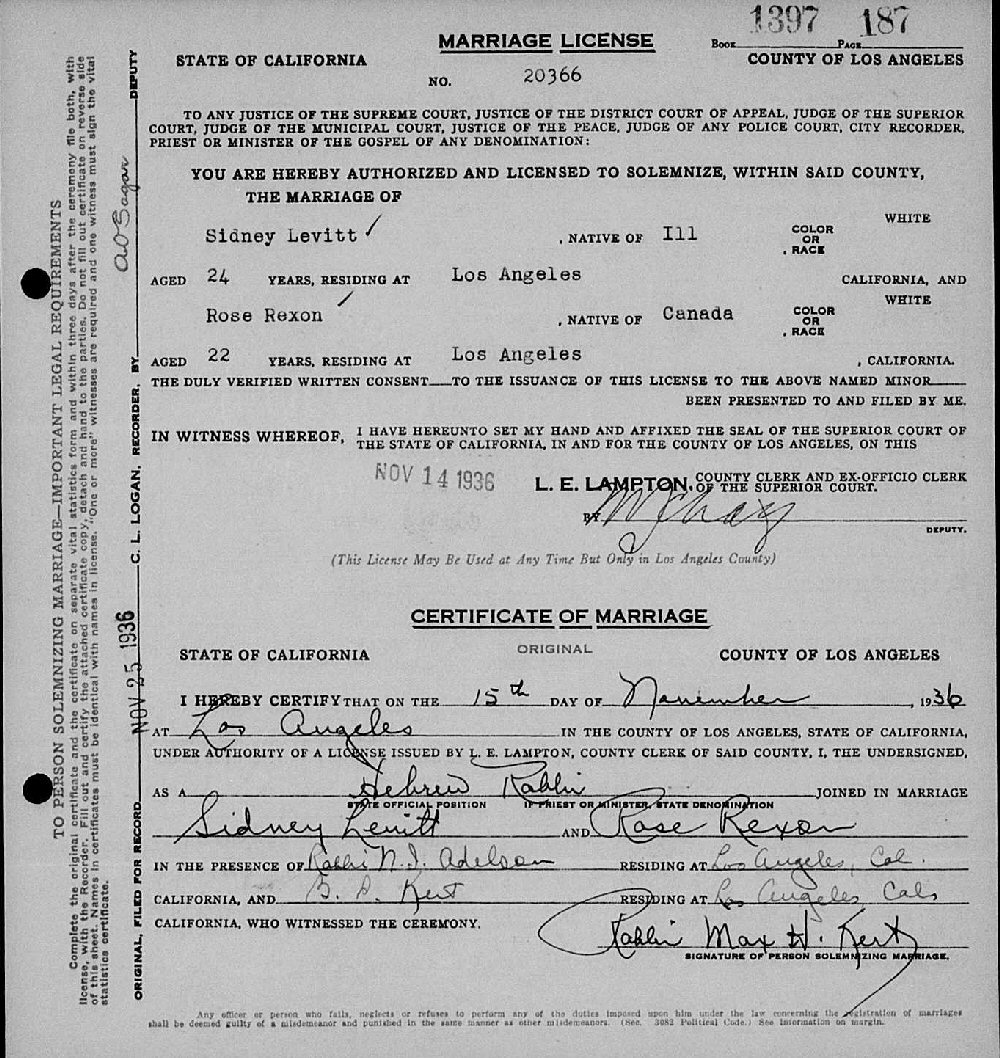 1397 187
MARRIAGE LICENSE
BOOK PAGE
STATE OF CALIFORNIA
COUNTY OF LOS ANGELES
NO. 20366
TO ANY JUSTICE OF THE SUPREME COURT, JUSTICE OF THE DISTRICT COURT OF APPEAL, JUDGE OF THE SUPERIOR
COURT, JUDGE OF THE MUNICIPAL COURT, JUSTICE OF THE PEACE, JUDGE OF ANY POLICE COURT, CITY RECORDER,
PRIEST OR MINISTER OF THE GOSPEL OF ANY DENOMINATION:
YOU ARE HEREBY AUTHORIZED AND LICENSED TO SOLEMNIZE, WITHIN SAID COUNTY,
THE MARRIAGE OF
WHITE
Sidney Levitt , NATIVE OF Ill , COLOR OR RACE
AGED 24 YEARS, RESIDING AT Los Angeles CALIFORNIA, AND
WHITE
Rose Rexon , NATIVE OF Canada , COLOR OR RACE
AGED 22 YEARS, RESIDING AT Los Angeles , CALIFORNIA.
THE DULY VERIFIED WRITTEN CONSENT TO THE ISSUANCE OF THIS LICENSE TO THE ABOVE NAMED MINOR
BEEN PRESENTED TO AND FILED BY ME.
IN WITNESS WHEREOF, I HAVE HEREUNTO SET MY HAND AND AFFIXED THE SEAL OF THE SUPERIOR COURT OF
THE STATE OF CALIFORNIA, IN AND FOR THE COUNTY OF LOS ANGELES, ON THIS
NOV 14 1936
L. E. LAMPTON, COUNTY CLERK AND EX-OFFICIO CLERK
OF THE SUPERIOR COURT.
BY
DEPUTY.
(This License May Be Used at Any Time But Only in Los Angeles County)
CERTIFICATE OF MARRIAGE
ORIGINAL
STATE OF CALIFORNIA
COUNTY OF LOS ANGELES
I HEREBY CERTIFY THAT ON THE 15th DAY OF November , 1936
AT Los Angeles IN THE COUNTY OF LOS ANGELES, STATE OF CALIFORNIA,
UNDER AUTHORITY OF A LICENSE ISSUED BY L. E. LAMPTON, COUNTY CLERK OF SAID COUNTY, I, THE UNDERSIGNED,
AS A Hebrew Rabbi JOINED IN MARRIAGE
STATE OFFICIAL POSITION IF PRIEST OR MINISTER, STATE DENOMINATION
Sidney Levitt AND Rose Rexon
IN THE PRESENCE OF Rabbi N. I. Adelson RESIDING AT Los Angeles, Cal.
CALIFORNIA, AND B. A. Kert RESIDING AT Los Angeles Cals
CALIFORNIA, WHO WITNESSED THE CEREMONY.
Rabbi Max H. Kert
SIGNATURE OF PERSON SOLEMNIZING MARRIAGE.
Any officer or person who fails, neglects or refuses to perform any of the duties imposed upon him under the law concerning the registration of marriages
shall be deemed guilty of a misdemeanor and punished in the same manner as other misdemeanors. (Sec. 3082 Political Code.) See information on margin.
TO PERSON SOLEMNIZING MARRIAGE—IMPORTANT LEGAL REQUIREMENTS
Complete the original certificate and the certificate on separate vital statistics form and within three days after the ceremony file both, with
license, with the Recorder. Fill out and certify the attached certificate copy, detach and hand to the parties. Do not fill out certificate on reverse side
of this sheet. Names in certificates must be identical with names in license. "One or more" witnesses are required and one witness must sign the vital
statistics certificate.
ORIGINAL, FILED FOR RECORD NOV 25 1936 C. L. LOGAN, RECORDER, BY DEPUTY